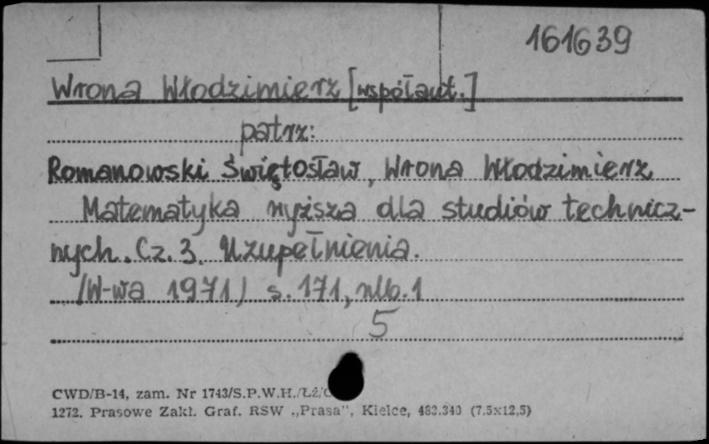 161639
Wrona Włodzimierz [współaut.]
patrz:
Romanowski Świętosław, Wrona Włodzimierz
Matematyka wyższa dla studiów technicz-
nych. Cz. 3. Uzupełnienia.
/W-wa 1971/ s. 171, nlb. 1
5
CWD/B-14, zam. Nr 1743/S.P.W.H./Łź/
1272. Prasowe Zakł. Graf. RSW „Prasa", Kielce, 483.340 (7,5x12,5)